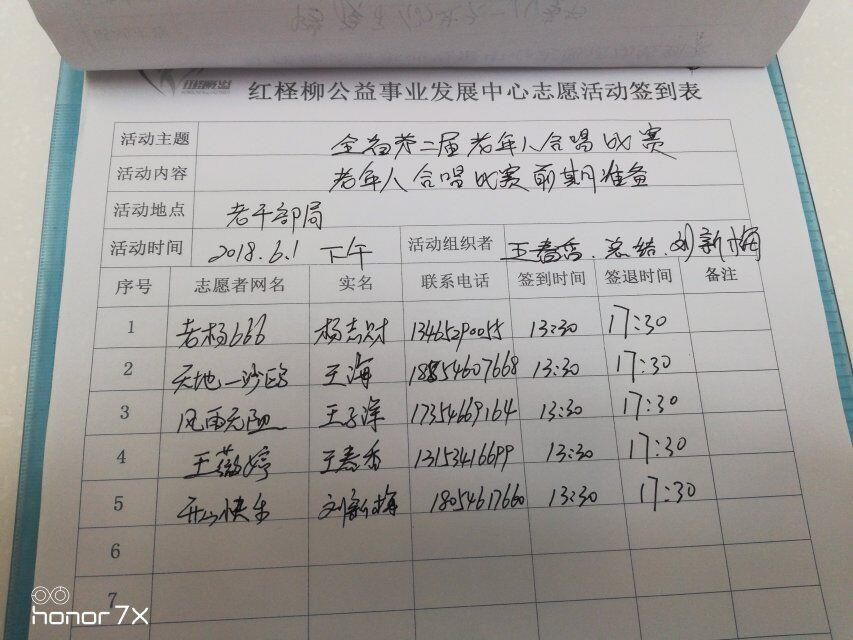 红柽柳公益事业发展中心志愿活动签到表
活动主题 全省第二届老年人合唱比赛
活动内容 老年人合唱比赛前期准备
活动地点 老干部局
活动时间 2018.6.1 下午 活动组织者 王春香、总结、刘新梅
序号 志愿者网名 实名 联系电话 签到时间 签退时间 备注
1 老杨666 杨志财 13465290055 13:30 17:30
2 天地一沙鸥 王海 18854607668 13:30 17:30
3 风雨无阻 17354669164 13:30 17:30
4 王薇婷 王春香 13153416699 13:30 17:30
5 开心快乐 刘新梅 18054617660 13:30 17:30
6
7
honor 7X